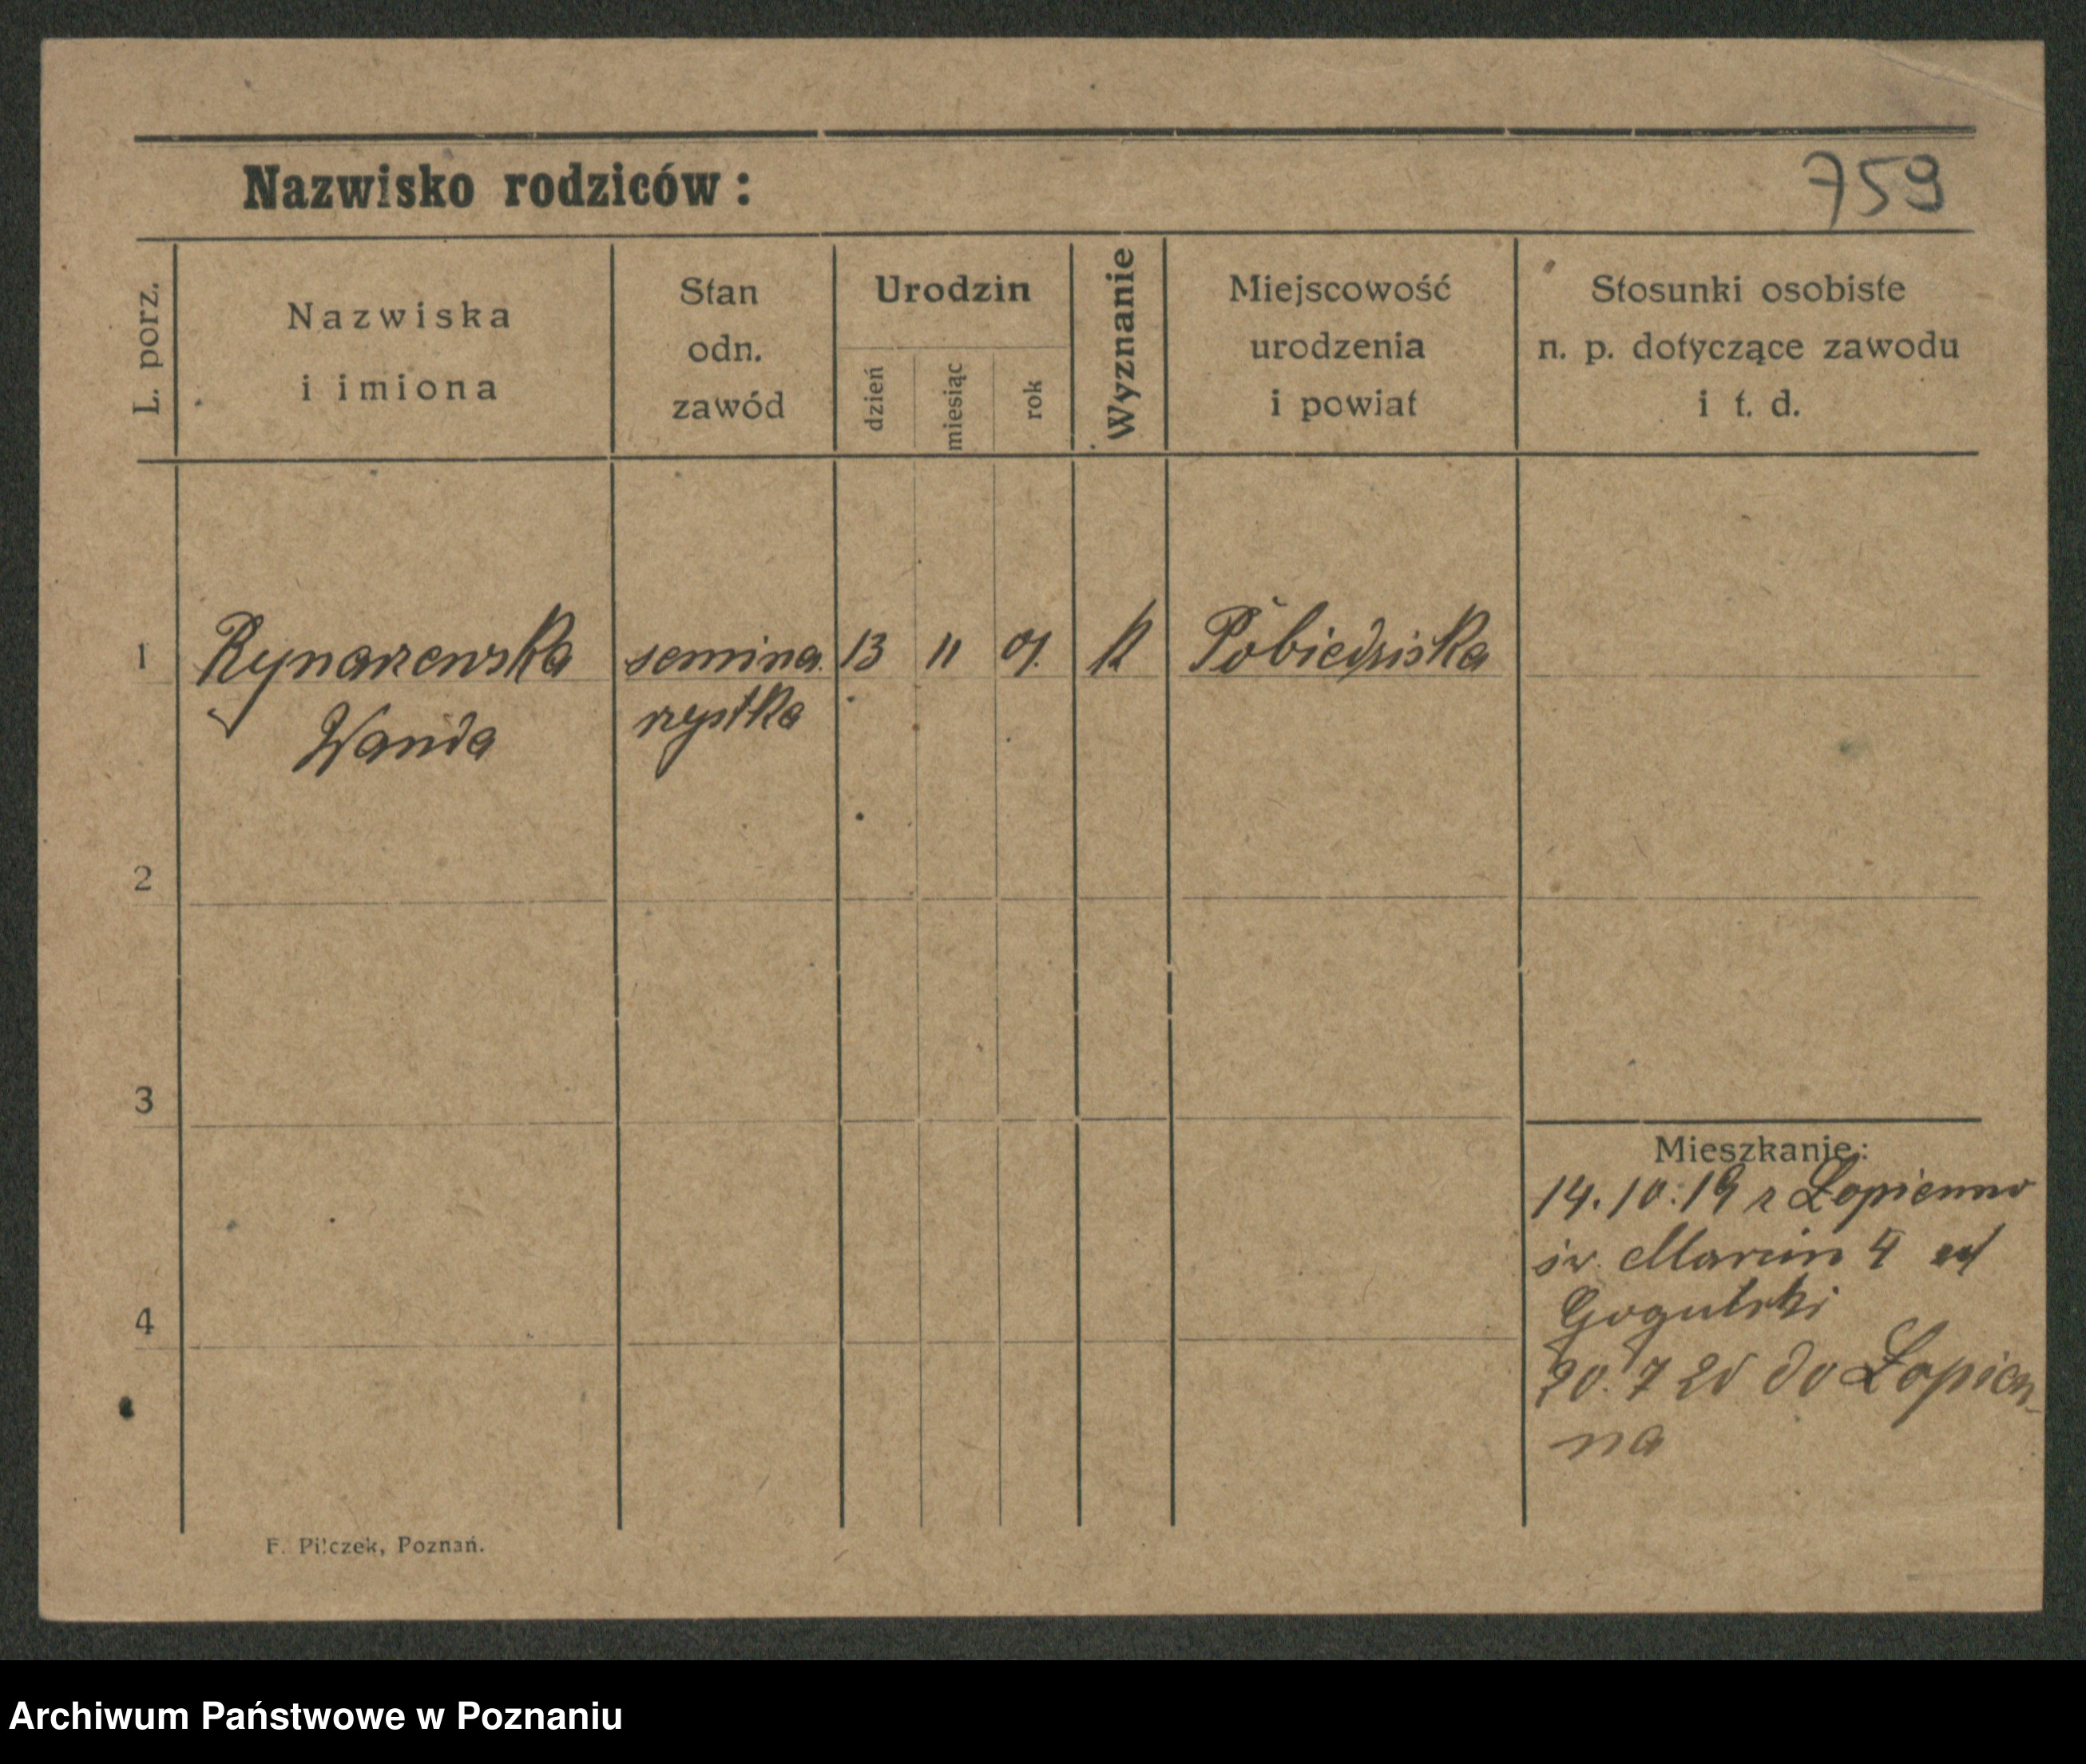 Nazwisko rodziców:
759
L. porz.
Nazwiska
i imiona
Stan
odn.
zawód
Urodzin
dzień
miesiąc
rok
Wyznanie
Miejscowość
urodzenia
i powiat
Stosunki osobiste
n. p. dotyczące zawodu
i t. d.
1 Rynarzewska semina. 13 11 01. K Pobiedziska
Wanda rzystka
2
3
4
Mieszkanie:
14.10.19 z Łopienno
św. Marcin 4
Gogulski
20. 7 20 do Łopien-
na
F. Pilczek, Poznań.
Archiwum Państwowe w Poznaniu